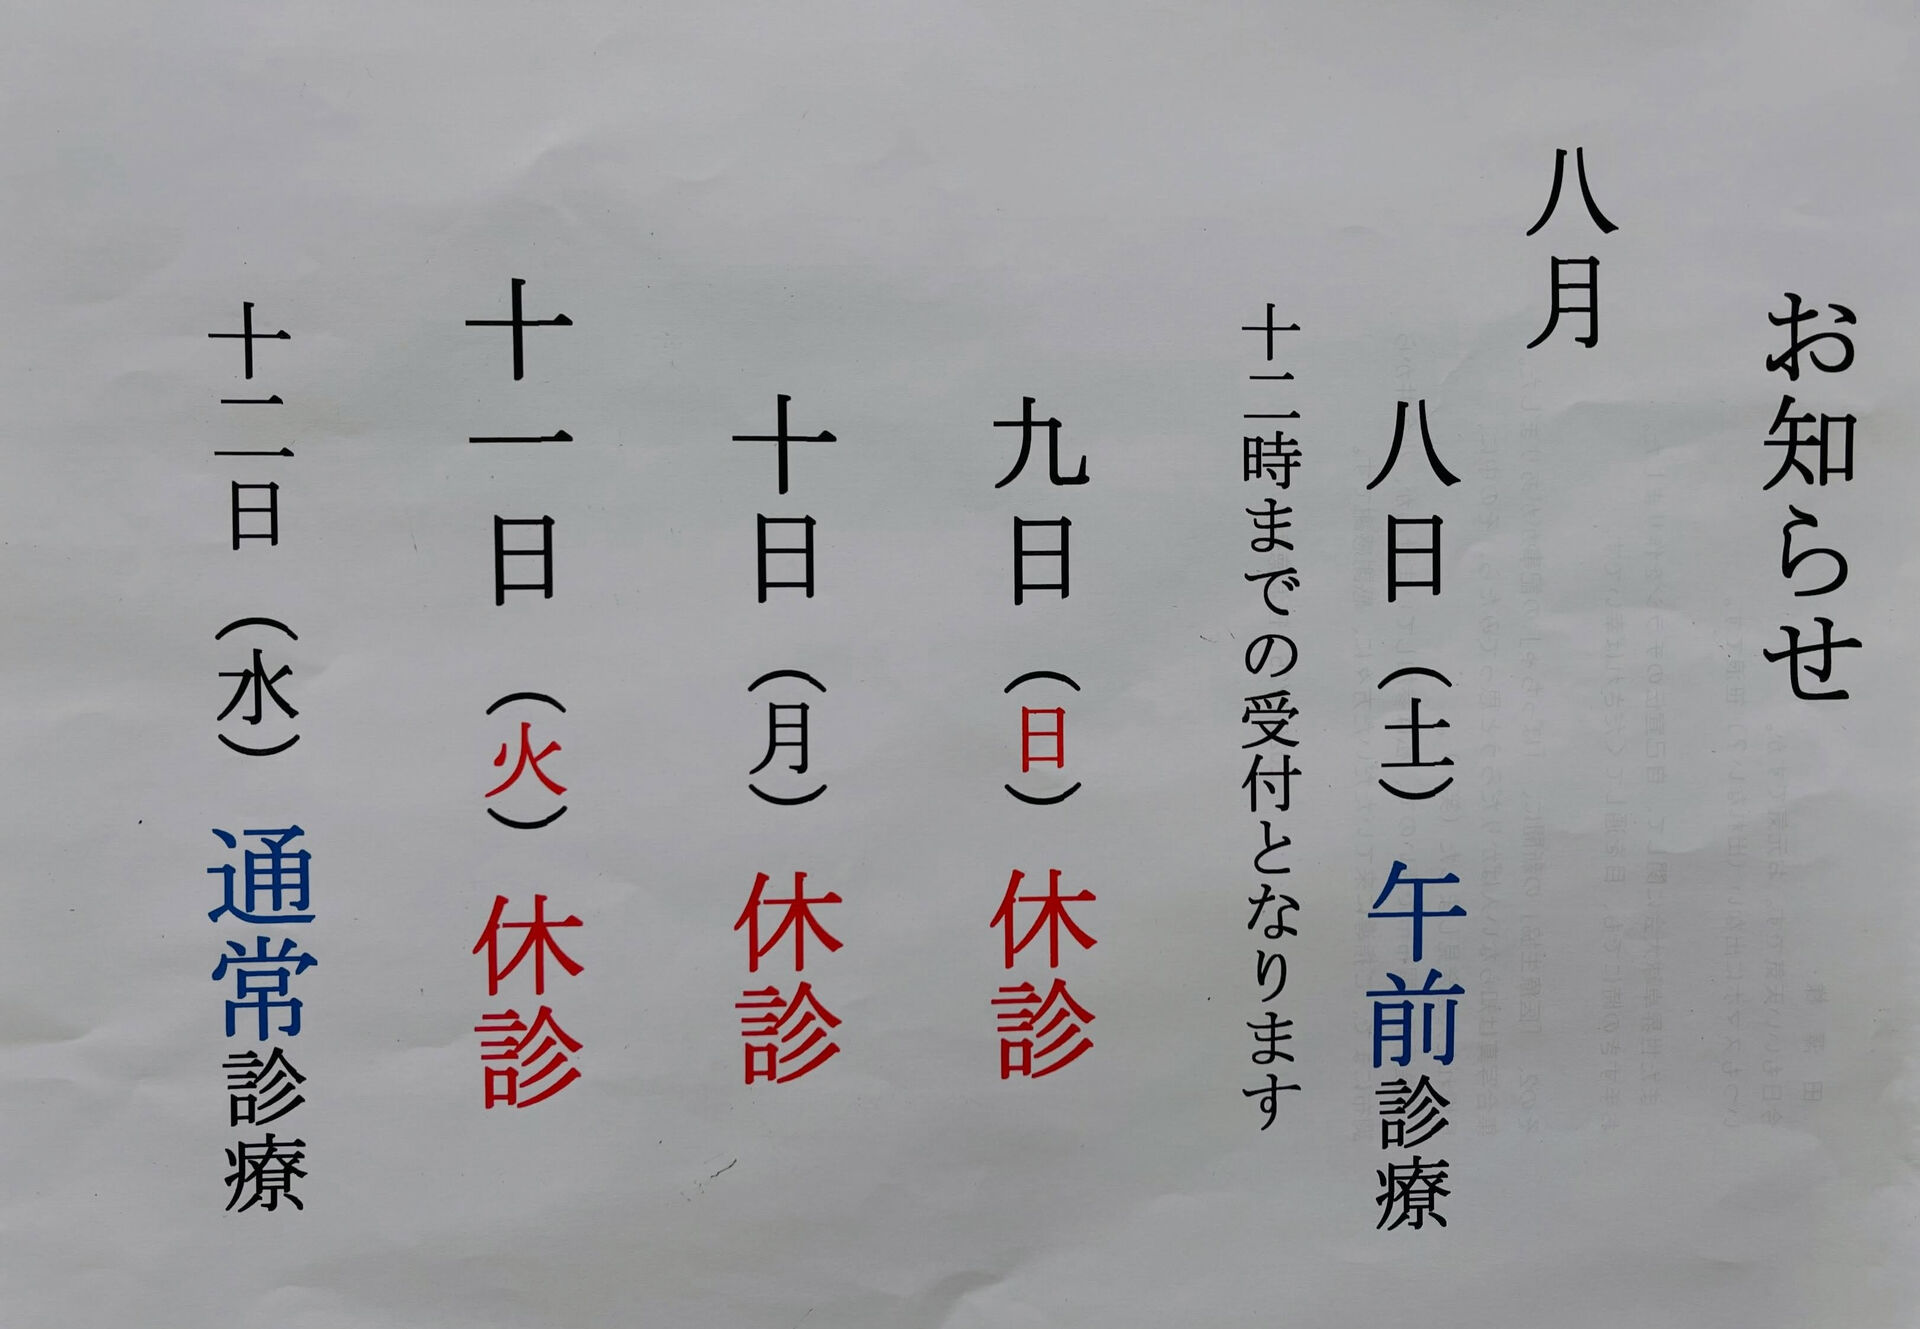 お知らせ
八月
八日（土）午前診療
十二時までの受付となります
九日（日）休診
十日（月）休診
十一日（火）休診
十二日（水）通常診療